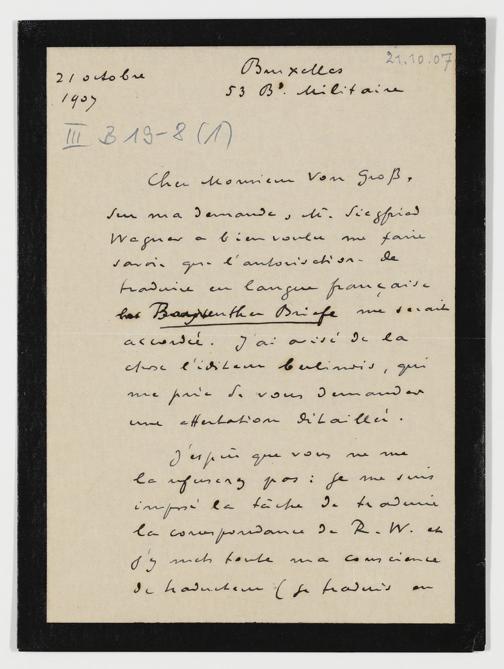 21.10.07
21 octobre
1907
Bruxelles
53 Bd. Militaire
III B 19-8 (1)
Cher Monsieur von Groß,
Sur ma demande, M. Siegfried
Wagner a bien voulu me faire
savoir que l'autorisation de
traduire en langue française
les Bayreuther Briefe me serait
accordée. J'ai avisé de la
chose l'éditeur berlinois, qui
me prie de vous demander
une attestation détaillée.
J'espère que vous ne me
la refuserez pas : je me suis
imposé la tâche de traduire
la correspondance de R. W. et
j'y mets toute ma conscience
de traducteur (je traduis en